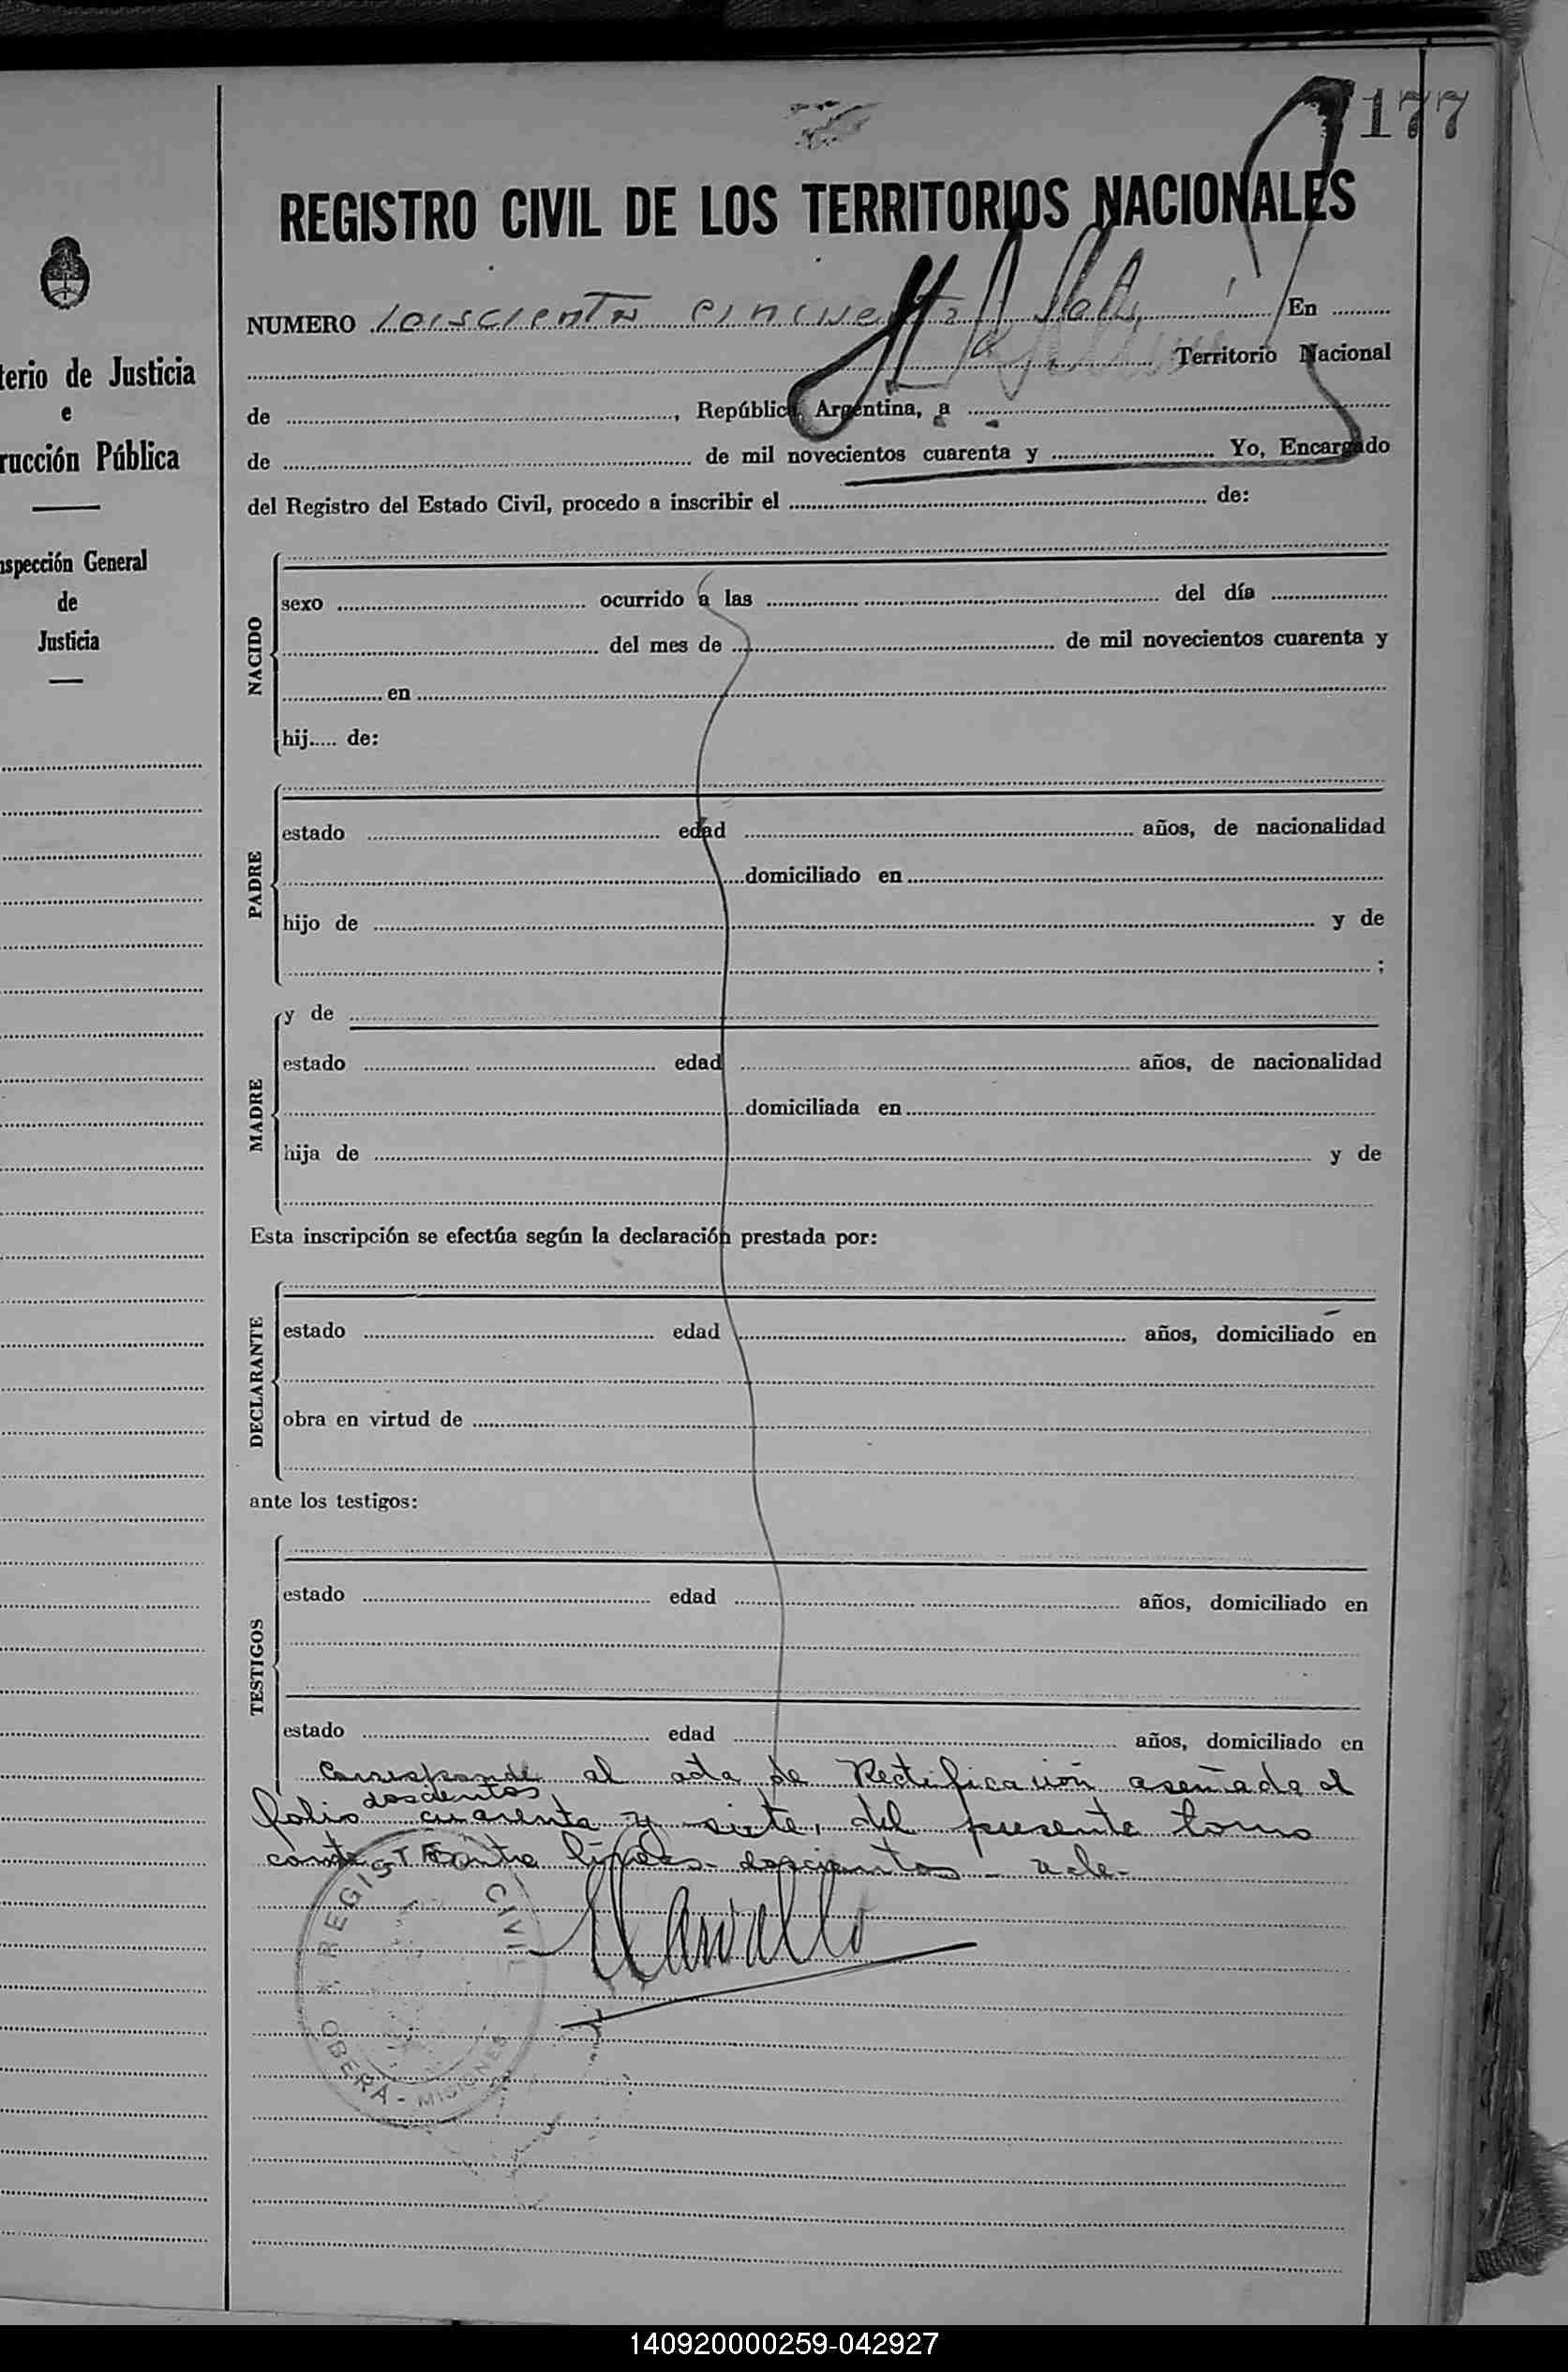 177
REGISTRO CIVIL DE LOS TERRITORIOS NACIONALES
NUMERO En
Territorio Nacional
de , República Argentina, a
de de mil novecientos cuarenta y Yo, Encargado
del Registro del Estado Civil, procedo a inscribir el de:
terio de Justicia
e
rucción Pública
nspección General
de
Justicia
NACIDO
sexo ocurrido a las del día
del mes de de mil novecientos cuarenta y
en
hij..... de:
PADRE
estado edad años, de nacionalidad
domiciliado en
hijo de y de
;
MADRE
y de
estado edad años, de nacionalidad
domiciliada en
hija de y de
Esta inscripción se efectúa según la declaración prestada por:
DECLARANTE
estado edad años, domiciliado en
obra en virtud de
ante los testigos:
TESTIGOS
estado edad años, domiciliado en
estado edad años, domiciliado en
Corresponde al acta de Rectificación asentada al
doscientos
folio cuarenta y siete, del presente tomo
conste Entre líneas - doscientos - vale -
REGISTRO CIVIL
OBERA - MISIONES
140920000259-042927